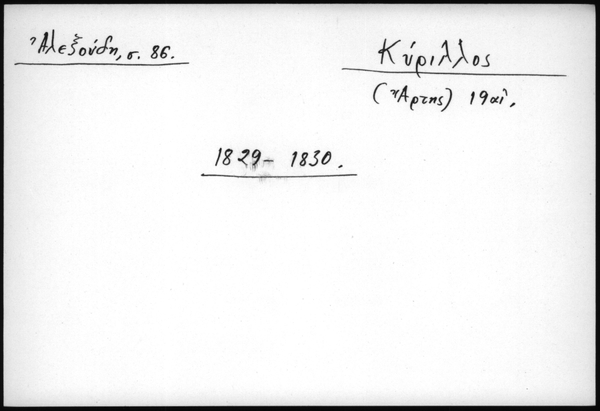 Ἀλεξούδη, σ. 86.
Κύριλλος
(Ἄρτης) 19αἰ.
1829 - 1830.